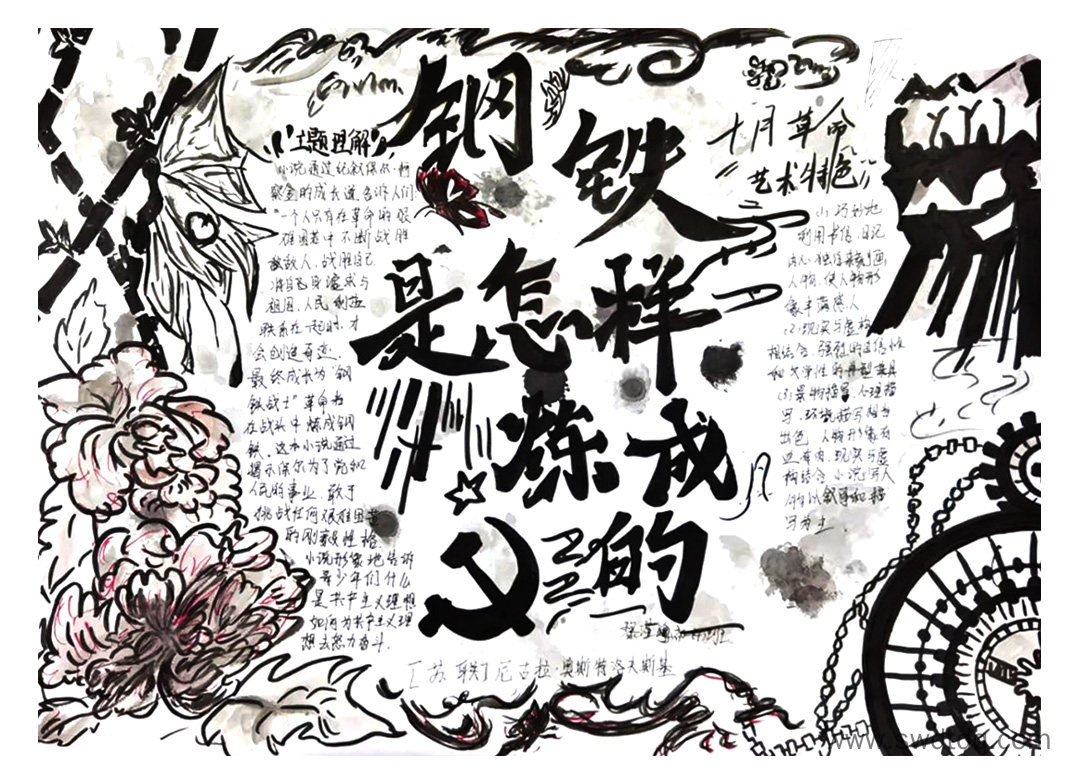 钢
铁
是怎样
炼成
的
主题理解
小说通过记叙保尔·柯
察金的成长道告诉人们
一个人只有在革命的艰
难困苦中不断战胜
敌人，战胜自己
将自己追求与
祖国、人民利益
联系在一起时，才
会创造奇迹，
最终成长为“钢
铁战士”革命者
在战火中炼成钢
铁。这本小说通过
揭示保尔为了党和
人民的事业，敢于
挑战任何艰难困苦
的刚毅性格
小说形象地告诉
青少年们什么
是共产主义理想
如何为共产主义理
想去努力奋斗.
十月革命
“艺术特色”
(1)巧妙地
利用书信、日记
内心独白来刻画
人物，使人物形
象丰满感人
(2)现实与虚构
相结合，强烈的真信性
和文学性的典型兼具
(3)景物描写、心理描
写、环境描写相当
出色，人物形象有
血有肉，现实与虚
构结合，小说写人
物以叙事和描
写为主
[苏联]尼古拉·奥斯特洛夫斯基